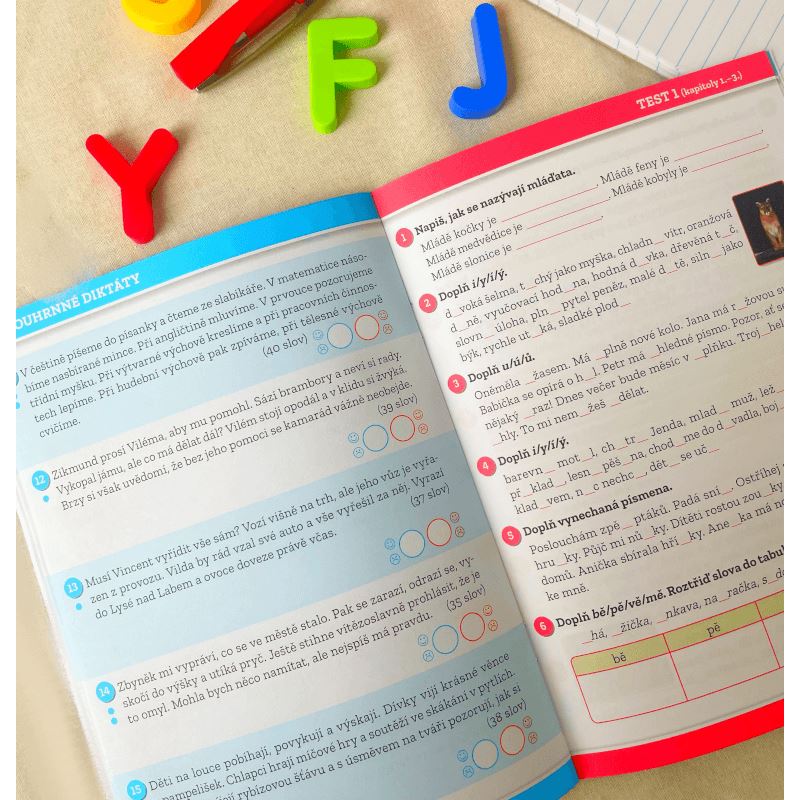 F
J
Y
OUHRNNÉ DIKTÁTY
V češtině píšeme do písanky a čteme ze slabikáře. V matematice náso-
bíme nasbírané mince. Při angličtině mluvíme. V prvouce pozorujeme
třídní myšku. Při výtvarné výchově kreslíme a při pracovních činnos-
tech lepíme. Při hudební výchově pak zpíváme, při tělesné výchově
cvičíme.
(40 slov)
12 Zikmund prosí Viléma, aby mu pomohl. Sází brambory a neví si rady.
Vykopal jámu, ale co má dělat dál? Vilém stojí opodál a v klidu si žvýká.
Brzy si však uvědomí, že bez jeho pomoci se kamarád vážně neobejde.
(39 slov)
13 Musí Vincent vyřídit vše sám? Vozí višně na trh, ale jeho vůz je vyřa-
zen z provozu. Vilda by rád vzal své auto a vše vyřešil za něj. Vyrazí
do Lysé nad Labem a ovoce doveze právě včas.
(37 slov)
14 Zbyněk mi vypráví, co se ve městě stalo. Pak se zarazí, odrazí se, vy-
skočí do výšky a utíká pryč. Ještě stihne vítězoslavně prohlásit, že je
to omyl. Mohla bych něco namítat, ale nejspíš má pravdu.
(35 slov)
15 Děti na louce pobíhají, povykují a výskají. Dívky vijí krásné věnce
pampelišek. Chlapci hrají míčové hry a soutěží ve skákání v pytlích.
rybízovou šťávu a s úsměvem na tváři pozorují, jak si
(38 slov)
TEST 1 (kapitoly 1.–3.)
1 Napiš, jak se nazývají mláďata.
Mládě kočky je ____________. Mládě feny je ____________.
Mládě medvědice je ____________. Mládě kobyly je ____________.
Mládě slonice je ____________.
2 Doplň i/y/í/ý.
d_voká šelma, t_chý jako myška, chladn_ vítr, oranžová
d_ně, vyučovací hod_na, hodná d_vka, dřevěná t_č,
slovn_ úloha, pln_ pytel peněz, malé d_tě, siln_ jako
býk, rychle ut_ká, sladké plod_
3 Doplň u/ú/ů.
Oněměla _žasem. Má _plně nové kolo. Jana má r_žovou
Babička se opírá o h_l. Petr má _hledné písmo. Pozor, ať se
nějaký _raz! Dnes večer bude měsíc v _plňku. Troj_hel
_hly. To mi nem_žeš _dělat.
4 Doplň i/y/í/ý.
barevn_ mot_l, ch_tr_ Jenda, mlad_ muž, lež_
př_klad_ lesn_ pěš_na, choď_me do d_vadla, boj
klad_vem, n_c nechc_, dět_ se uč_
5 Doplň vynechaná písmena.
Poslouchám zpě_ ptáků. Padá sní_. Ostříhej
hru_ky. Půjč mi nů_ky. Dítěti rostou zou_ky
domů. Anička sbírala hří_ky. Ane_ka má
ke mně.
6 Doplň bě/pě/vě/mě. Roztřiď slova do
_há, _žička, _nkava, na_račka, s_
bě
pě